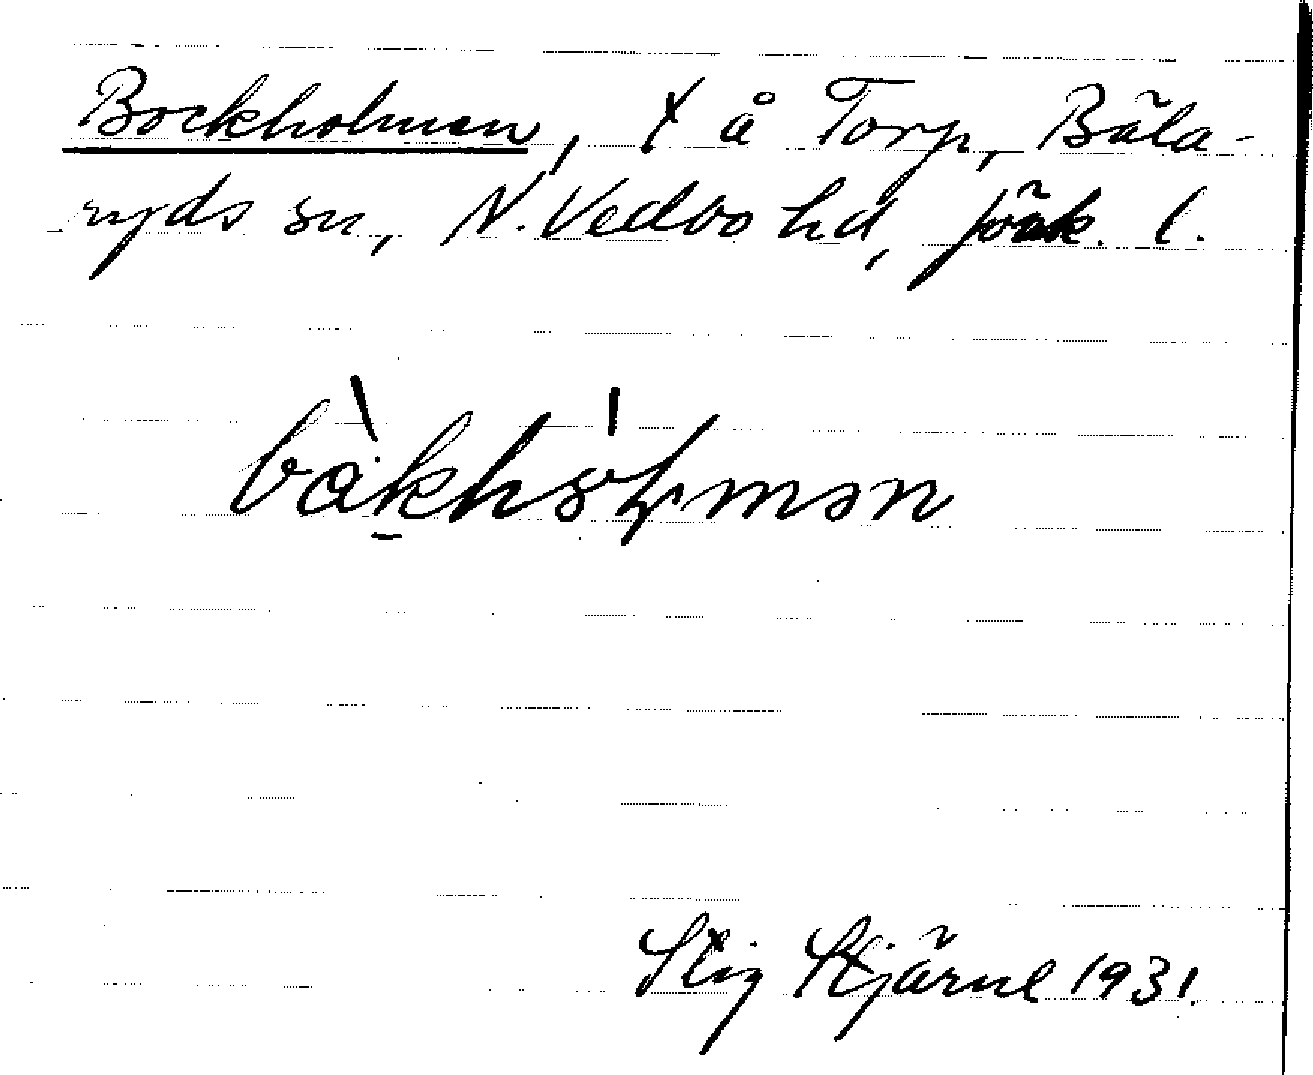 Bockholmen, t å Torp, Bäla-
ryds sn, N. Vedbo hd, Jönk. l.
bàkhólmən
Stig Stjärne 1931.